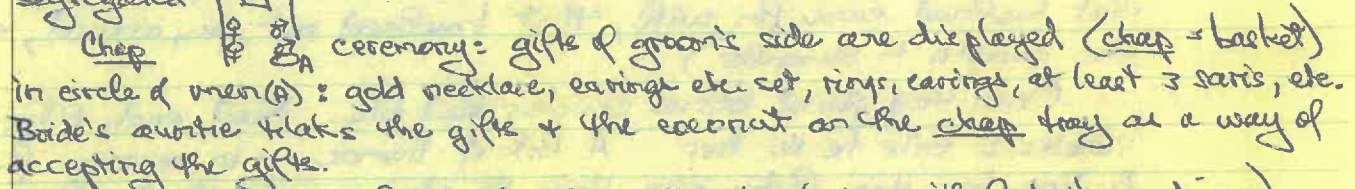 segregated
Chap A ceremony: gifts of groom's side are displayed (chap = basket)
in circle of men (A): gold necklace, earings etc set, rings, earings, at least 3 saris, etc.
Bride's auntie tilaks the gifts + the coconut on the chap tray as a way of
accepting the gifts.